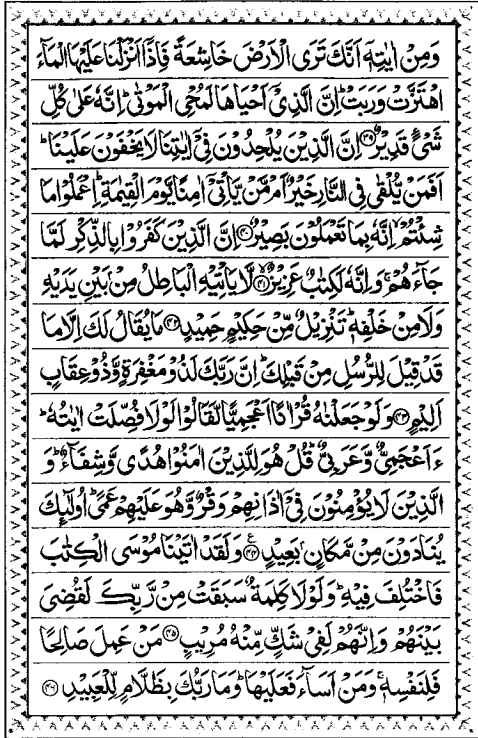 وَمِنْ اٰيٰتِهٖۤ اَنَّكَ تَرَى الْاَرْضَ خَاشِعَةً فَاِذَاۤ اَنْزَلْنَا عَلَيْهَا الْمَآءَ
اهْتَزَّتْ وَرَبَتْ ؕ اِنَّ الَّذِيْۤ اَحْيَاهَا لَمُحْيِ الْمَوْتٰى ؕ اِنَّهٗ عَلٰى كُلِّ
شَيْءٍ قَدِيْرٌ ﴿۳۹﴾ اِنَّ الَّذِيْنَ يُلْحِدُوْنَ فِيْۤ اٰيٰتِنَا لَا يَخْفَوْنَ عَلَيْنَا ؕ
اَفَمَنْ يُّلْقٰى فِي النَّارِ خَيْرٌ اَمْ مَّنْ يَّاْتِيْۤ اٰمِنًا يَّوْمَ الْقِيٰمَةِ ؕ اِعْمَلُوْا مَا
شِئْتُمْ ۙ اِنَّهٗ بِمَا تَعْمَلُوْنَ بَصِيْرٌ ﴿۴۰﴾ اِنَّ الَّذِيْنَ كَفَرُوْا بِالذِّكْرِ لَمَّا
جَآءَهُمْ ۚ وَاِنَّهٗ لَكِتٰبٌ عَزِيْزٌ ﴿۴۱﴾ ۙ لَّا يَاْتِيْهِ الْبَاطِلُ مِنْۢ بَيْنِ يَدَيْهِ
وَلَا مِنْ خَلْفِهٖ ؕ تَنْزِيْلٌ مِّنْ حَكِيْمٍ حَمِيْدٍ ﴿۴۲﴾ مَا يُقَالُ لَكَ اِلَّا مَا
قَدْ قِيْلَ لِلرُّسُلِ مِنْ قَبْلِكَ ؕ اِنَّ رَبَّكَ لَذُوْ مَغْفِرَةٍ وَّذُوْ عِقَابٍ
اَلِيْمٍ ﴿۴۳﴾ وَلَوْ جَعَلْنٰهُ قُرْاٰنًا اَعْجَمِيًّا لَّقَالُوْا لَوْلَا فُصِّلَتْ اٰيٰتُهٗ ؕ
ءَاَعْجَمِيٌّ وَّعَرَبِيٌّ ؕ قُلْ هُوَ لِلَّذِيْنَ اٰمَنُوْا هُدًى وَّشِفَآءٌ ؕ وَ
الَّذِيْنَ لَا يُؤْمِنُوْنَ فِيْۤ اٰذَانِهِمْ وَقْرٌ وَّهُوَ عَلَيْهِمْ عَمًى ؕ اُولٰٓئِكَ
يُنَادَوْنَ مِنْ مَّكَانٍۭ بَعِيْدٍ ﴿۴۴﴾ ع وَلَقَدْ اٰتَيْنَا مُوْسَى الْكِتٰبَ
فَاخْتُلِفَ فِيْهِ ؕ وَلَوْلَا كَلِمَةٌ سَبَقَتْ مِنْ رَّبِّكَ لَقُضِيَ
بَيْنَهُمْ ؕ وَاِنَّهُمْ لَفِيْ شَكٍّ مِّنْهُ مُرِيْبٍ ﴿۴۵﴾ مَنْ عَمِلَ صَالِحًا
فَلِنَفْسِهٖ ۚ وَمَنْ اَسَآءَ فَعَلَيْهَا ؕ وَمَا رَبُّكَ بِظَلَّامٍ لِّلْعَبِيْدِ ﴿۴۶﴾